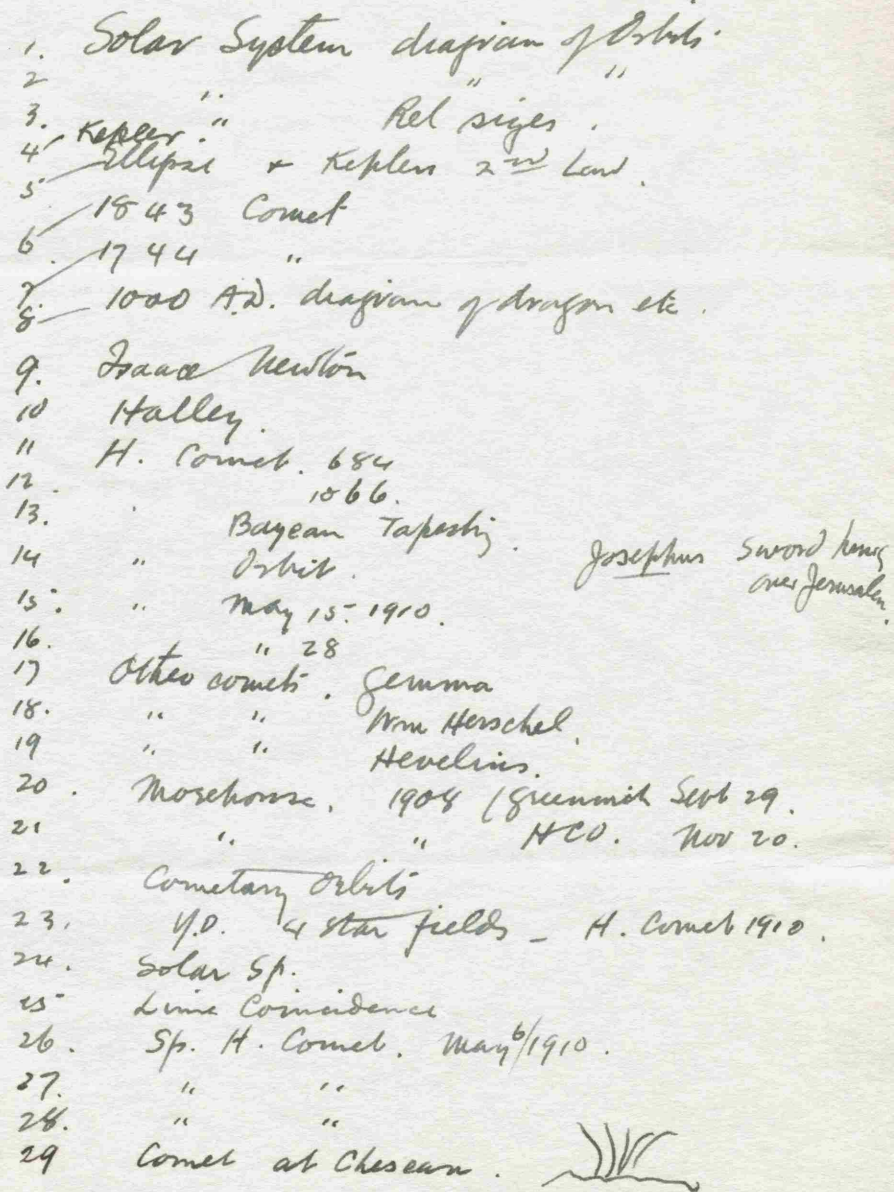 1. Solar System diagram of Orbits.
2 " " "
3. " Rel sizes.
4 Kepler
5 Ellipse + Keplers 2nd Law.
6 1843 Comet
7. 1744 "
8 1000 A.D. diagram of dragon etc.
9. Isaac Newton
10 Halley.
11 H. Comet. 684
12 1066.
13. Bayean Tapestry.
14 " Orbit.
Josephus Sword hung over Jerusalem.
15. " May 15. 1910.
16. " 28
17 Other comets. Gemma
18. " " Wm Herschel.
19 " " Hevelius.
20. Morehouse. 1908 (Greenwich Sept 29.
21 " " HCO. Nov 20.
22. Cometary Orbits
23. Y.O. 4 Star fields - H. Comet 1910.
24. Solar Sp.
25 Line Coincidence
26. Sp. H. Comet. May 6/1910.
27. " "
28. " "
29 Comet at Cheseaux.